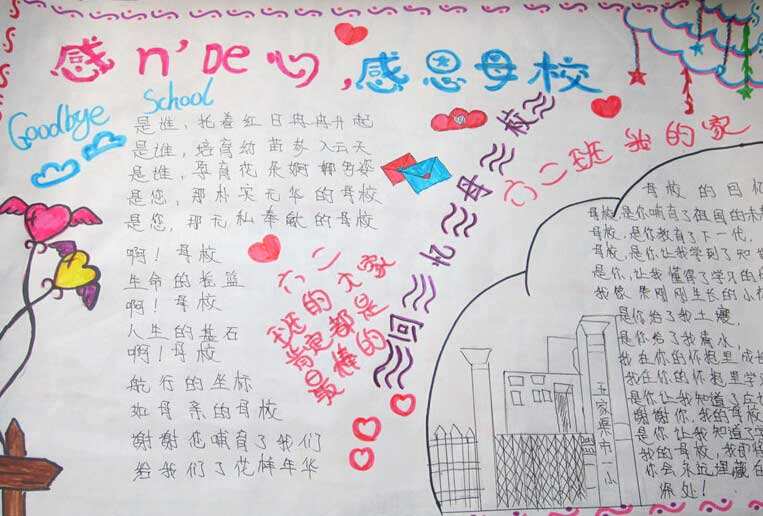 感 n' De 心, 感恩母校
Goodbye School
是谁，托着红日冉冉升起
是谁，培育幼苗参入云天
是谁，
是您，那朴实无华的母校
是您，那无私奉献的母校
啊！母校
生命的摇篮
啊！母校
人生的基石
啊！母校
航行的坐标
如母亲的母校
谢谢你哺育了我们
给我们了花样年华
六二
班的大家
肯定都是
最棒的
回忆母校
六二班 我的家
母校的回忆
母校，是你哺育了祖国的未
母校，是你教育了下一代，
母校，是你，让我学到了知
是你，让我懂得了学习的
我像一棵刚刚生长的小
是你给了我土壤，
是你给了我雨水，
我在你的怀抱里成长
我在你的怀抱里学
是你，让我知道了
谢谢你，我的母校
是你，让我知道了
我的母校，我即
你会永远埋藏在
深处！
五家渠市一小